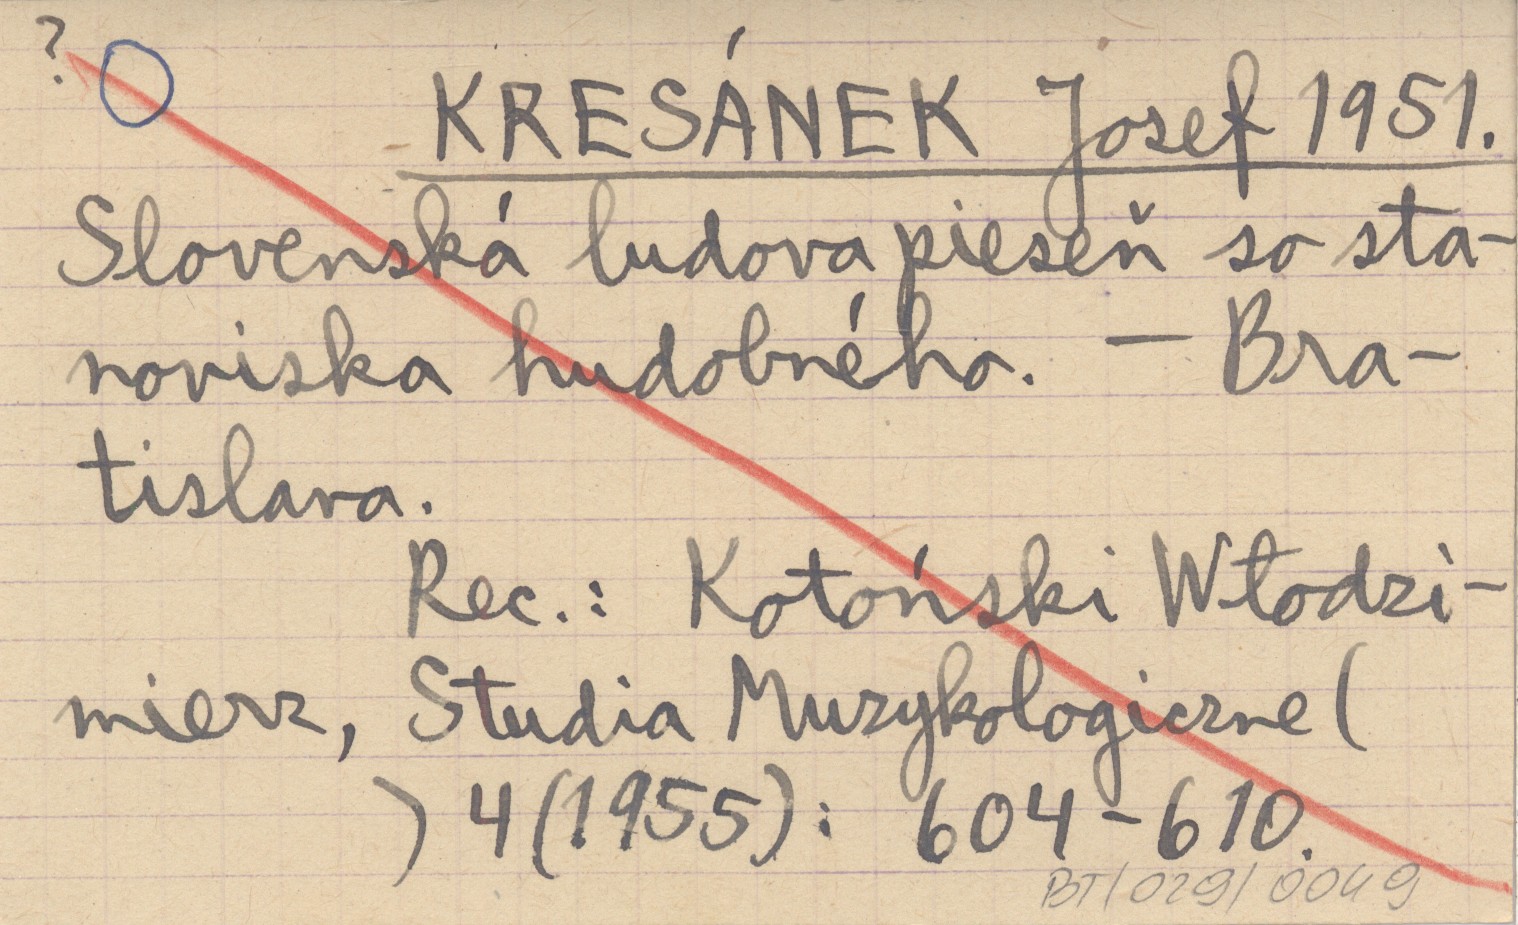 ?
KRESÁNEK Josef 1951.
Slovenská ludova pieseň so sta-
noviska hudobného. — Bra-
tislava.
Rec.: Kotoński Włodzi-
mierz, Studia Muzykologiczne (
) 4 (1955): 604-610.
BT/029/0049